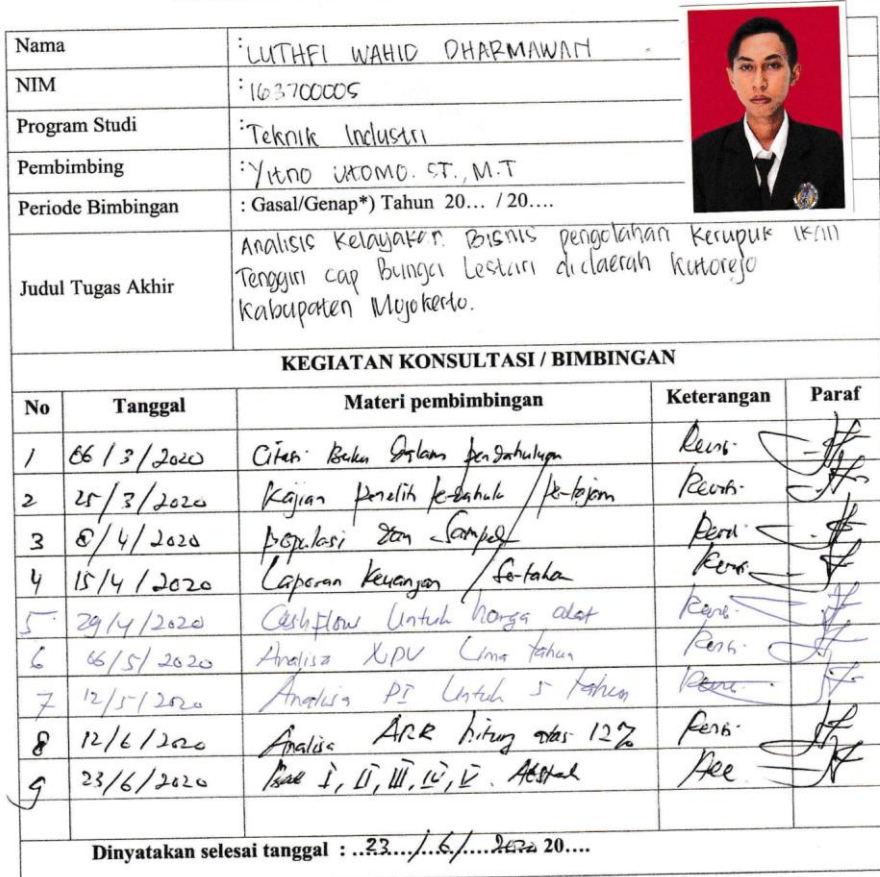 Nama : LUTHFI WAHID DHARMAWAN
NIM : 163700005
Program Studi : Teknik Industri
Pembimbing : Yitno Utomo. ST., M.T
Periode Bimbingan : Gasal/Genap*) Tahun 20... / 20....
Judul Tugas Akhir
Analisis Kelayakan Bisnis pengolahan Kerupuk Ikan
Tenggiri cap Bunga Lestari didaerah Kutorejo
Kabupaten Mojokerto.
KEGIATAN KONSULTASI / BIMBINGAN
No Tanggal Materi pembimbingan Keterangan Paraf
1 06/3/2020 Citasi Buku Dalam pendahuluan Revisi
2 25/3/2020 Kajian
3 8/4/2020 populasi dan Sampel Revisi
4 15/4/2020 Laporan Keuangan / Revisi
5 29/4/2020 Cashflow Untuk harga alat Revisi
6 06/5/2020 Analisa NPV Lima tahun Revisi
7 12/5/2020 Analisa PI Untuk 5 tahun Revisi
8 12/6/2020 Analisa ARR hitung atas 12% Revisi
9 23/6/2020 Bab I, II, III, IV, V. Acc
Dinyatakan selesai tanggal : ..23.../..6./....2020 20....